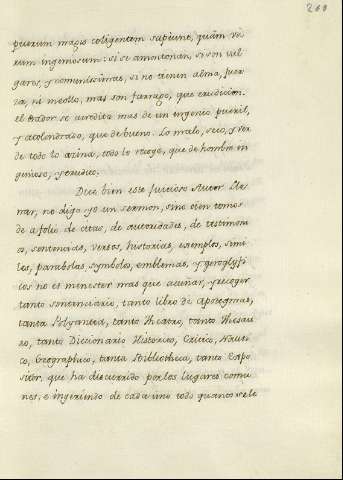 260
puerum magis coligentem sapiunt, quàm vi
rum ingeniosum: si se amontonan, si son vul
gares, y comunissimas, si no tienen alma, fuer
za, ni meollo, mas son farrago, que erudicion.
el orador se acredita mas de un ingenio pueril,
y acolondrado, que de bueno. Lo malo, seco, y ver
de todo lo acina, todo lo recoge, que de hombre in
genioso, y erudito.
Dice bien este juicioso Autor. Lle
nar, no digo yo un sermon, sino cien tomos
de afolio de citas, de autoridades, de testimoni
os, sentencias, versos, historias, exemplos, simi
les, parabolas, symbolos, emblemas, y geroglyfi
cos no es menester mas que acinar, y recoger
tanto sentenciario, tanto libro de Apotegmas,
tanta Polyantea, tanto Theatro, tanto Thesau
ro, tanto Diccionario Historico, Critico, Nauti
co, Geographico, tanta Bibliotheca, tanto Expo
sitor, que ha discurrido por los lugares comu
nes, e ingiriendo de cada uno todo quanto se le